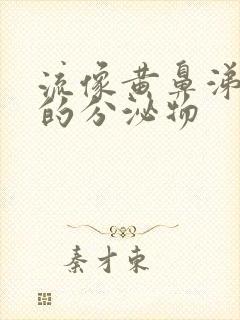 流像黄鼻涕
的分泌物
秦才东